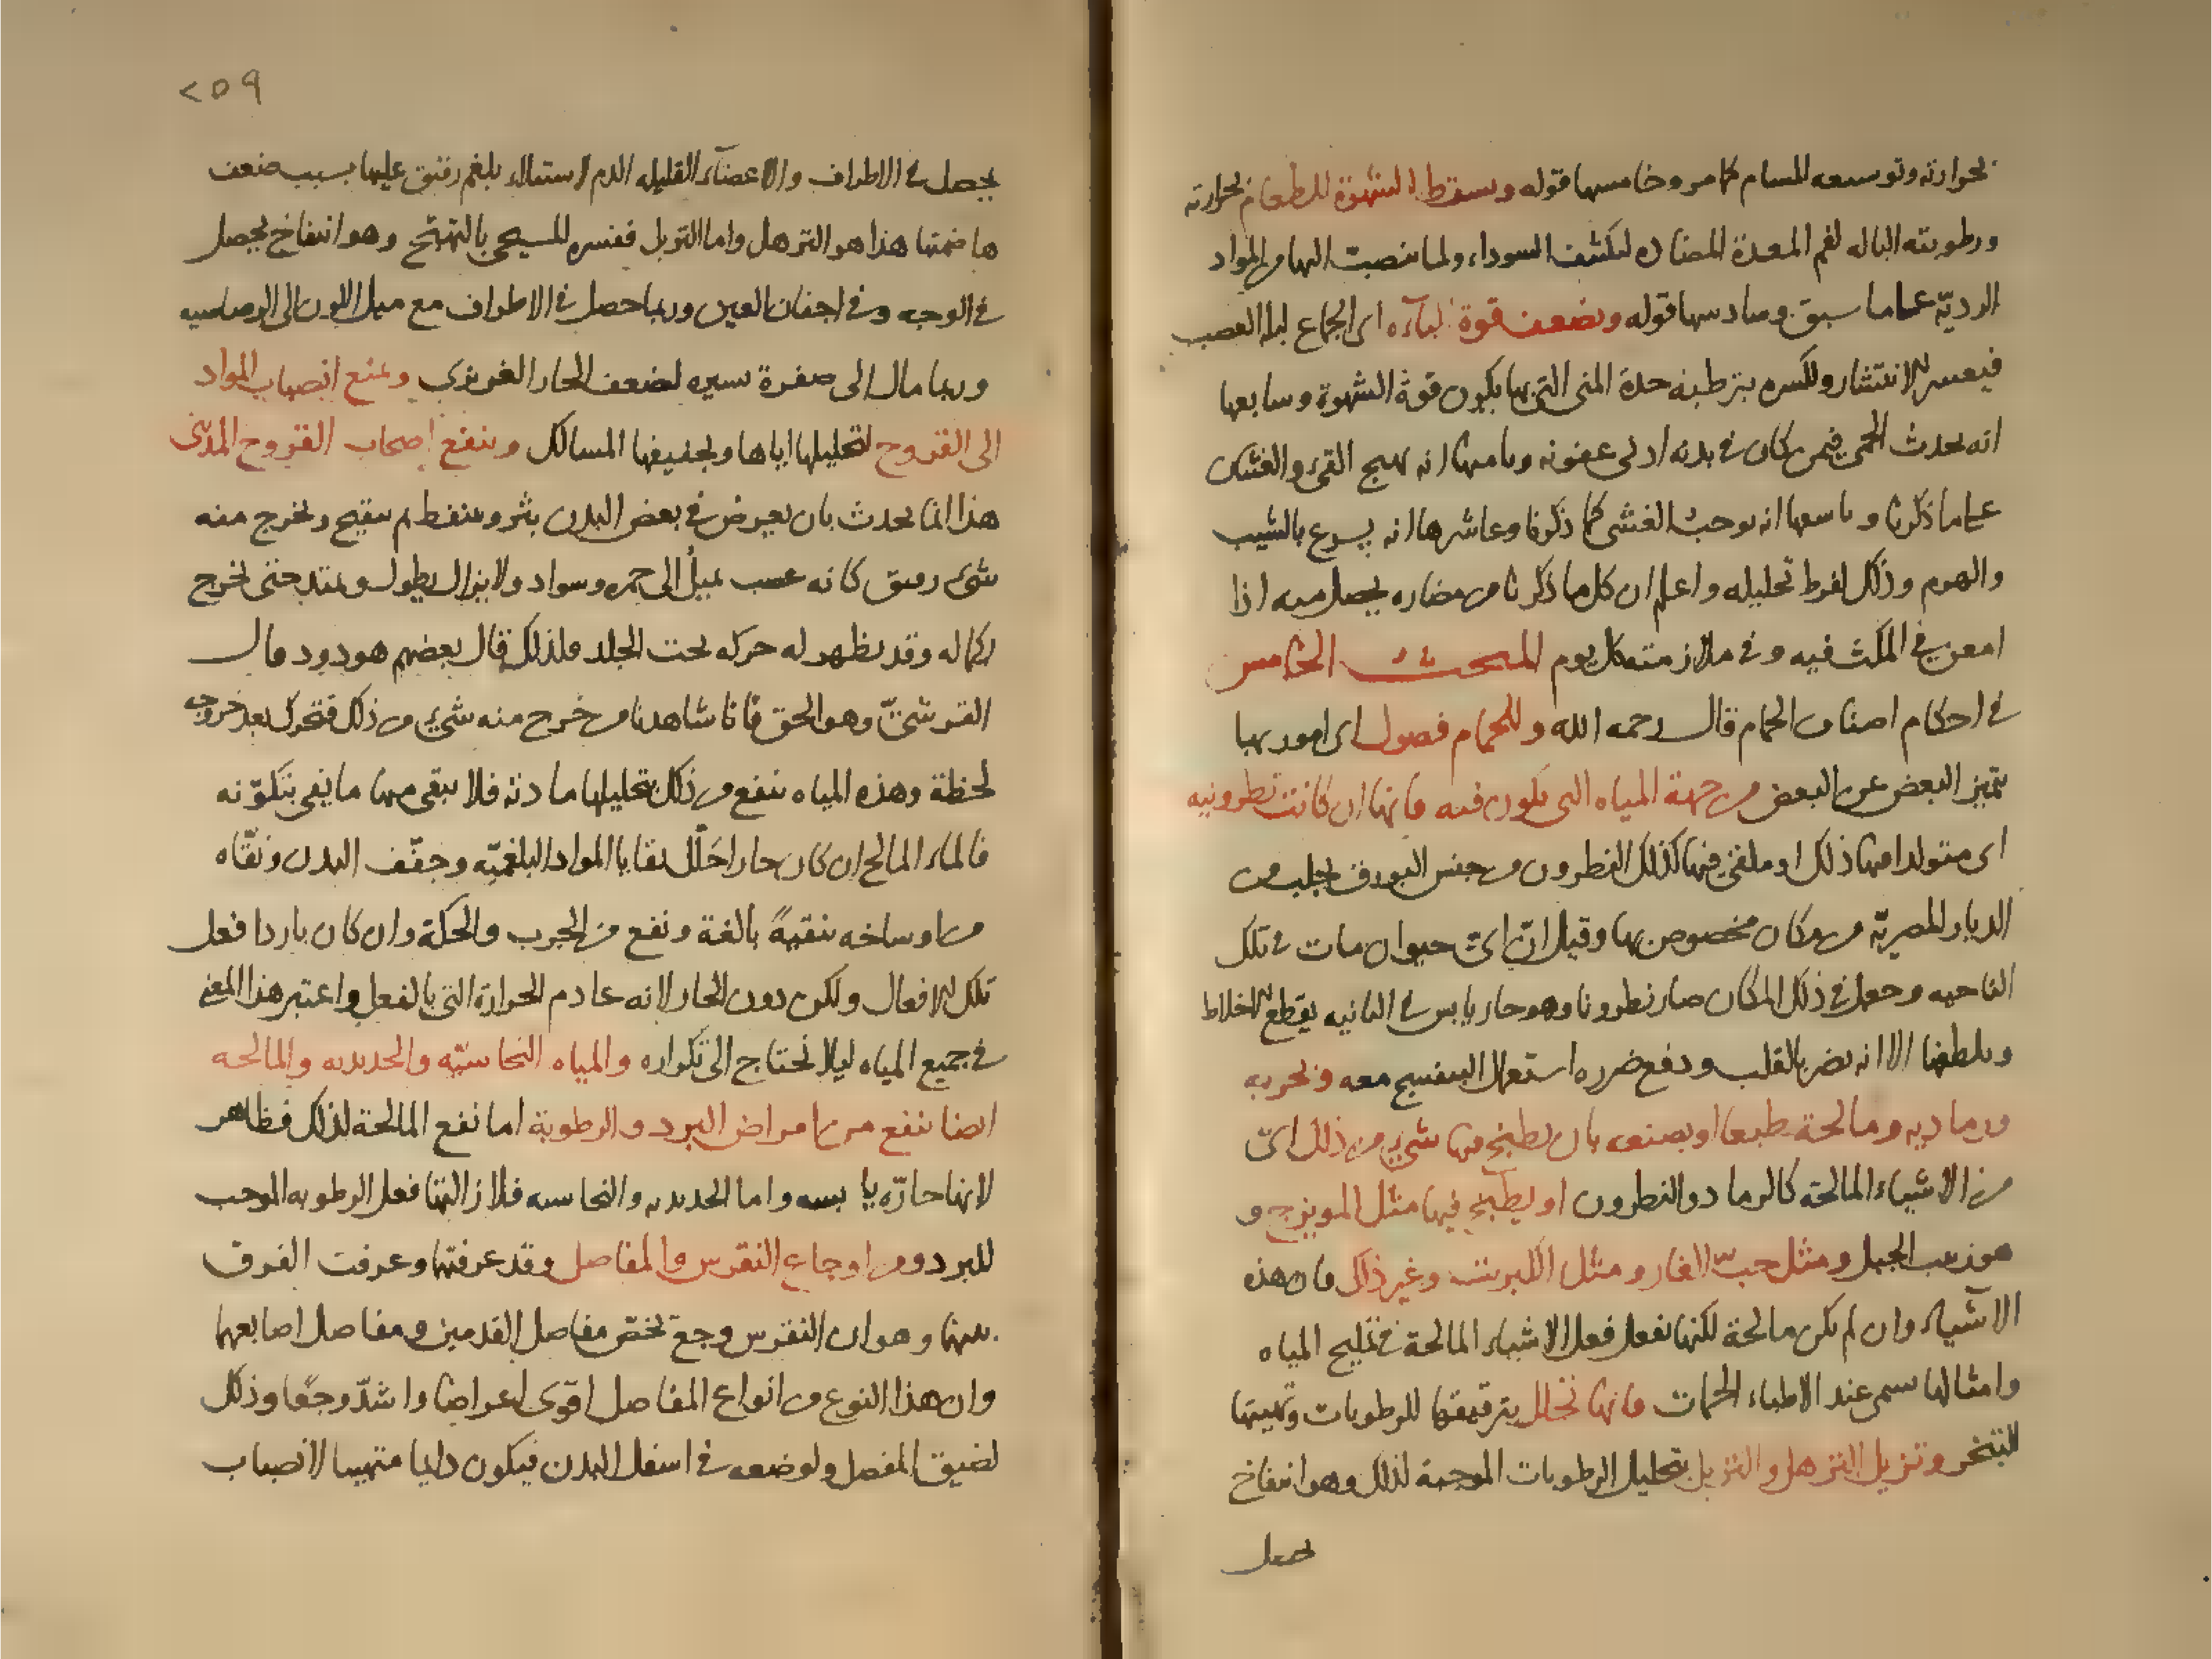 بحرارته وتوسعه للمسام كما مر وخامسها قوله ويسقط الشهوة للطعام لحرارته
ورطوبته الباله لفم المعدة المضاده لتكثف السوداء ولما ينصب اليها من المواد
الرديّة على ما سبق وسادسها قوله ويضعف قوة الباءه اى الجماع لبله العصب
فيعسر الانتشار ولكسره بترطيبه حدة المنى التى بها يكون قوة الشهوة وسابعها
انه يحدث الحمى فيمن كان فى بدنه ادنى عفونه وثامنها انه يهيج القىء والغشى
على ما ذكرنا وتاسعها انه يوجب الغشى كما ذكرنا وعاشرها انه يسرع بالشيب
والهرم وذلك لفرط تحليله واعلم ان كل ما ذكرنا من مضاره يحصل منه اذا
امعن فى المكث فيه وفى ملازمته كل يوم المبحث الخامس
فى احكام اصناف الحمام قال رحمه الله وللحمام فصول اى امور بها
يتميز البعض عن البعض من جهة المياه التى تكون فيه فانها ان كانت نطرونيه
اى متولدا منها ذلك او ملقى فيها كذلك النطرون من جنس البورق يجلب من
الديار المصريّة من مكان مخصوص بها وقيل انّ اىّ حيوان مات فى تلك
الناحيه وجعل فى ذلك المكان صار نطرونا وهو حار يابس فى الثانيه يقطع الاخلاط
ويلطفها الا انه يضر بالقلب ودفع ضرره استعمال البنفسج معه وبحريه
ورماديه ومالحة طبعا او بصنعه بان يطبخ فيها شىء من ذلك اىّ
من الاشياء المالحة كالرماد والنطرون او يطبخ فيها مثل المويزج و
هو زبيب الجبل ومثل حبّ الغار ومثل الكبريت وغير ذلك فان هذه
الاشياء وان لم تكن مالحة لكنها تفعل فعل الاشياء المالحة فى تمليح المياه
وامثالها يسمى عند الاطباء الحمات فانها تحلل بترقيقها للرطوبات وتهيتها
للتبخر وتزيل الترهل والتربل بتحليل الرطوبات الموجبة لذلك وهو انتفاخ
يحصل
٢٥٩
يحصل فى الاطراف والاعضاء القليله الدم لاستيلاء بلغم رقيق عليها بسبب ضعف
هاضمتها هذا هو الترهل واما التربل ففسره المسيحى بالتهيّج وهو انتفاخ يحصل
فى الوجه وفى اجفان العين وربما حصل فى الاطراف مع ميل اللون الى الرصاصيه
وربما مال الى صفرة يسيره لضعف الحار الغريزى وتمنع انصباب المواد
الى القروح لتحليلها اياها وتجفيفها المسالك وينفع اصحاب القروح المدنى
هذا انما يحدث بان يعرض فى بعض البدن بثر ويتنفط ثم يتقيح ويخرج منه
شىء رقيق كانه عصب يميل الى حمره وسواد ولا يزال يطول ويمتد حتى يخرج
بكماله وقد يظهر له حركه تحت الجلد ولذلك قال بعضهم هو دود قال
القرشىّ وهو الحق فانا شاهدنا من خرج منه شىء من ذلك فتحرك بعد خروجه
لحظة وهذه المياه تنفع من ذلك بتحليلها مادته فلا يبقى منها ما يفى بتكوّنه
فالماء المالح ان كان حارا حَلّل بقايا المواد البلغميّه وجفّف البدن ونقّاه
من اوساخه تنقيةً بالغة ونفع من الجرب والحكة وان كان باردا فعل
تلك الافعال ولكن دون الحار لانه عادم الحرارة التى بالفعل واعتبر هذا المعنى
فى جميع المياه ليلا تحتاج الى تكواره والمياه النحاسيّه والحديديه والمالحه
ايضا تنفع من امراض البرد والرطوبة اما نفع المالحة لذلك فظاهر
لانها حارّه يابسه واما الحديديه والنحاسيه فلازالتها فعل الرطوبه الموجب
للبرد ومن اوجاع النقرس والمفاصل وقد عرفتها وعرفت الفرق
بينها وهو ان النقرس وجع يختص مفاصل القدمين ومفاصل اصابعهما
وان هذا النوع من انواع المفاصل اقوى اعراضا واشدّ وجعًا وذلك
لضيق المفصل ولوضعه فى اسفل البدن فيكون دايما متهييا لانصباب